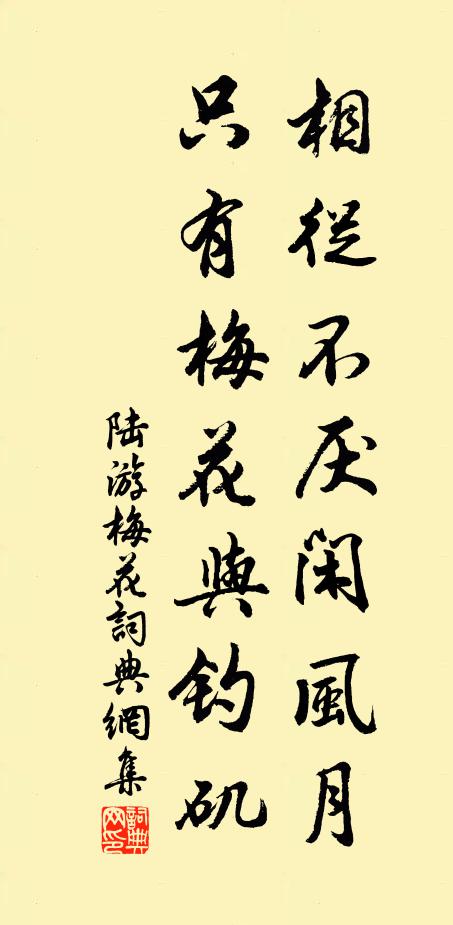 相從不厌閑風月
只有梅花與钓矶
陆游梅花詞典網集
詞典网印